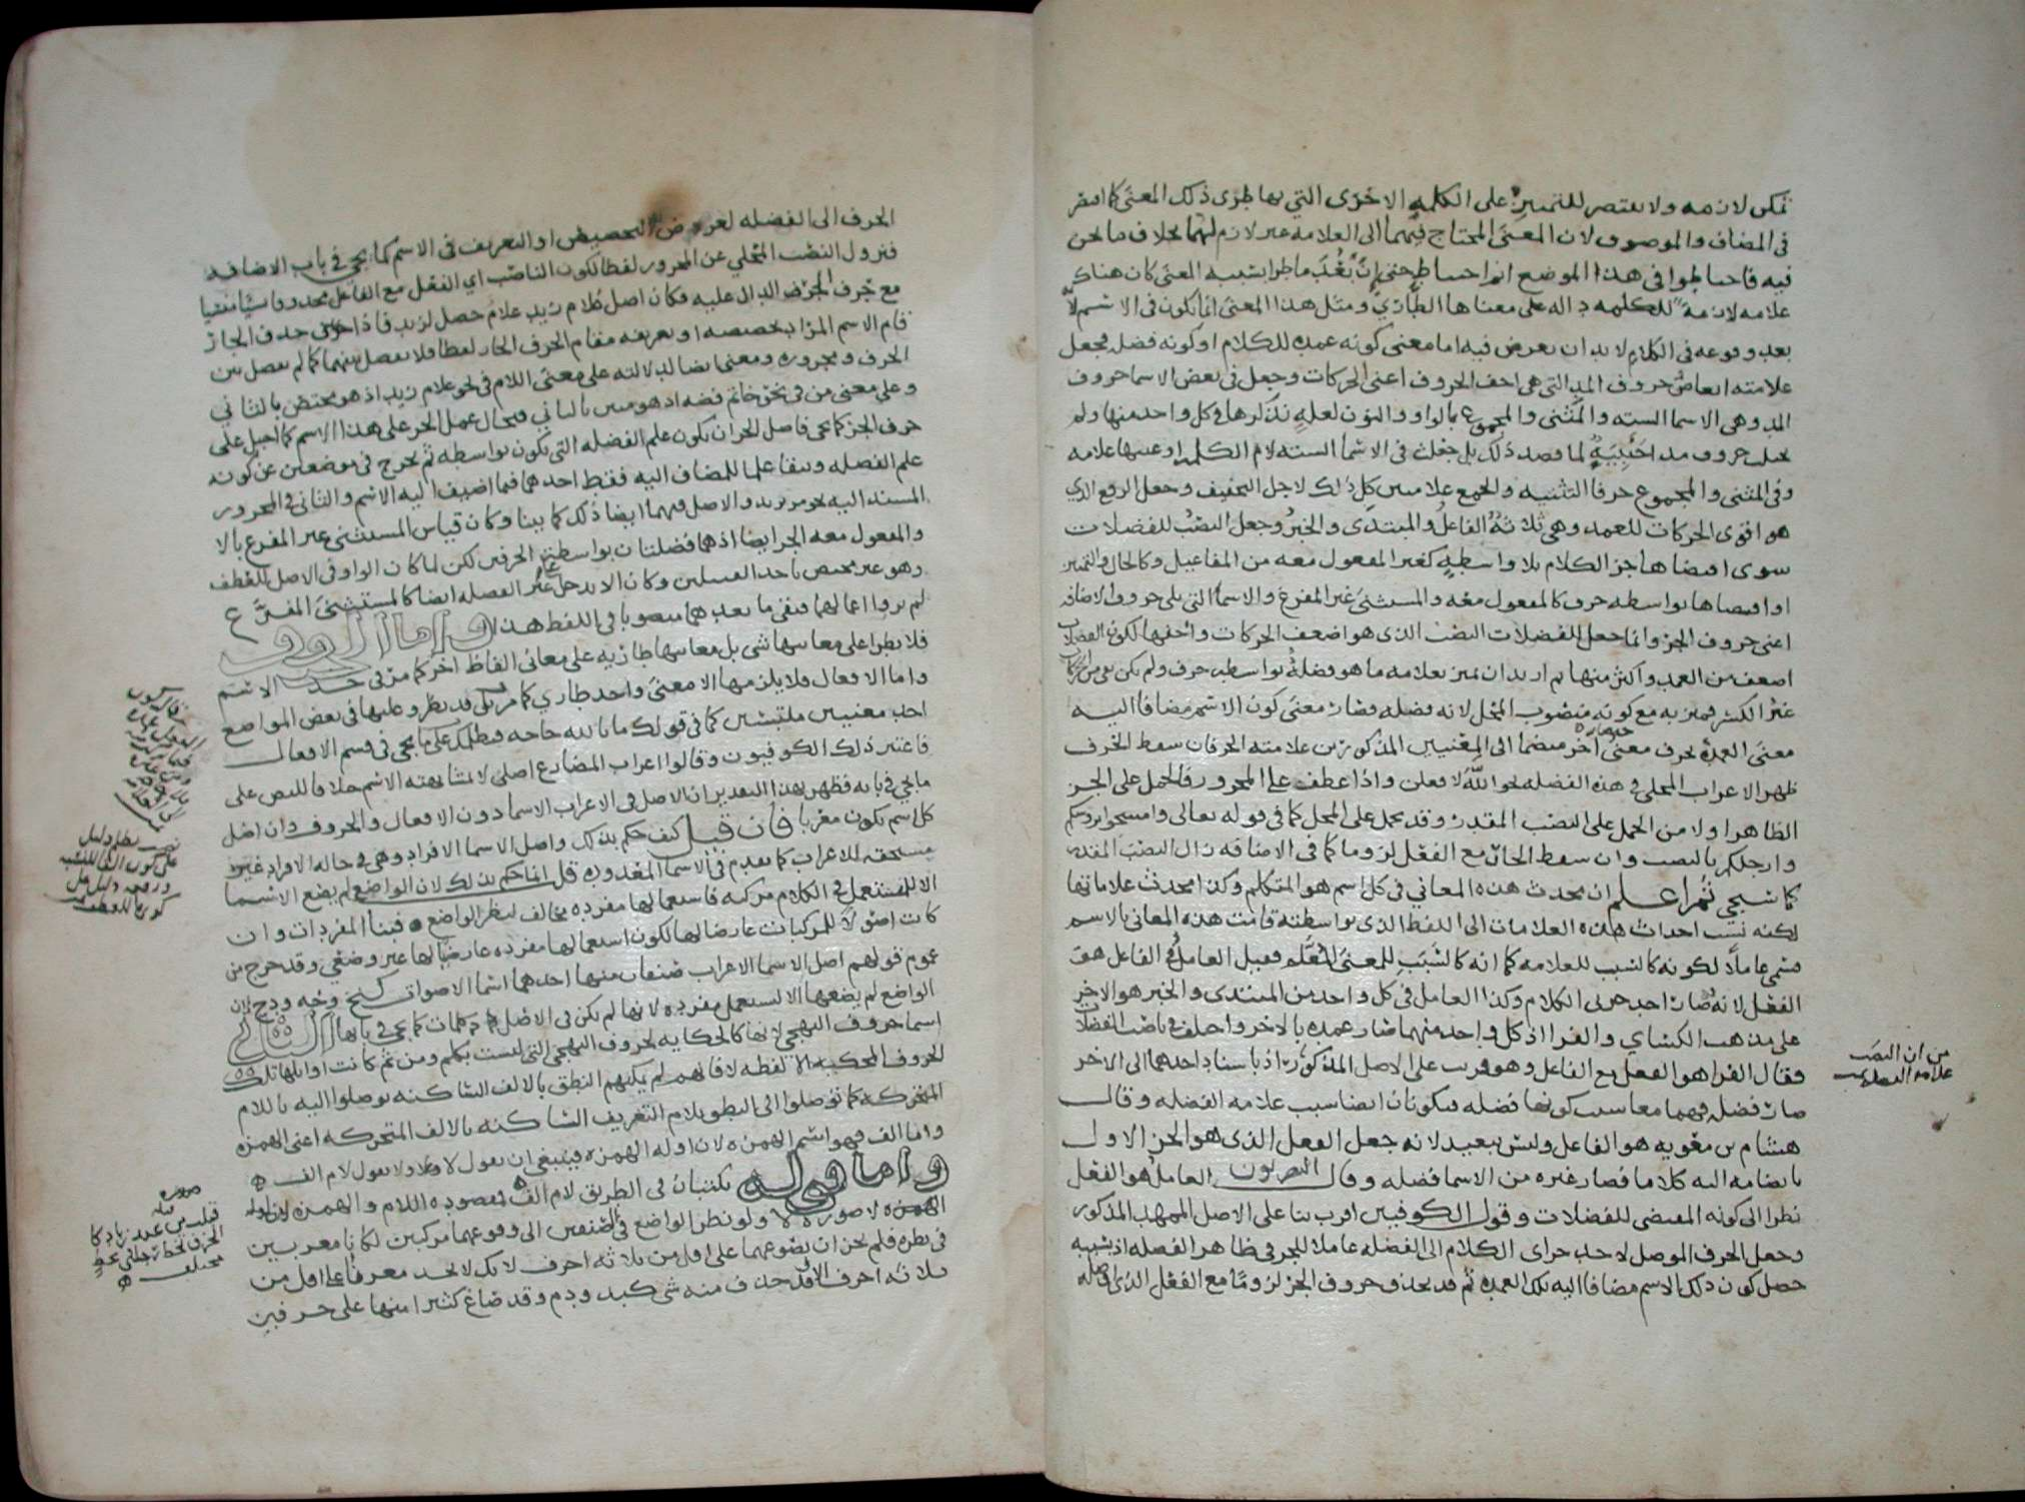 تمكن لازمه ولا يقتصر للتمييز على الكلمة الاخرى التي بها طرى ذلك المعنى كما اقتصر
في المضاف والموصوف لان المعنى المحتاج فيهما الى العلامة غير لازم لهما بخلاف ما نحن
فيه فاحتاطوا في هذا الموضع اتم احتياط حتى ان بعد ما طرا بسببه المعنى كان هناك
علامه لازمة للكلمه داله على معناها الطاري ومثل هذا المعنى انما يكون في الاسم لانه
بعد وقوعه في الكلام لا بد ان يعرض فيه اما معنى كونه عمده للكلام او كونه فضله فجعل
علامته ابعاض حروف المد التي هي اخف الحروف اعنى الحركات وجعل في بعض الاسما حروف
المد وهى الاسما السته والمثنى والمجموع بالواو والنون لعله نذكرها في كل واحد منها ولم
تجلب حروف مد اجنبية لما قصد ذلك بل جعلت في الاسما السته لام الكلمه او عينها علامه
وفي المثنى والمجموع حرفا التثنيه والجمع علامتين كل ذلك لاجل التخفيف وجعل الرفع الذي
هو اقوى الحركات للعمد وهى ثلاثة الفاعل والمبتدى والخبر وجعل النصب للفضلات
سوى اقتضاها جز الكلام بلا واسطة كغير المفعول معه من المفاعيل وكالحال والتمييز
او اقتضاها بواسطه حرف كالمفعول معه والمستثنى غير المفرغ والاسما التي تلى حروف الاضافه
اعنى حروف الجر وانما جعل للفضلات النصب الذى هو اضعف الحركات واخفها لكون الفضلات
اضعف من العمد واكثر منها ثم اريد ان يميز بعلامه ما هو فضلة بواسطه حرف ولم يكن بقى من الحركات
غير الكسر فميز به مع كونه منصوب المحل لانه فضله فصار معنى كون الاسم مضافا اليه
معنى العمدة بحرف معنى اخر منضما الى المعنيين المذكورين علامته الجر فان سقط الحرف
ظهر الاعراب المحلى في هذه الفضله نحو الله لافعلن واذا عطف على المجرور فالحمل على الجر
الظاهر اولا من الحمل على النصب المقدر وقد يحمل على المحل كما في قوله تعالى وامسحوا برؤسكم
وارجلكم بالنصب وان سقط الجار مع الفعل لزوما كما في الاضافه زال النصب المقدر
كما سيجي ثم اعلم ان محدث هذه المعاني في كل اسم هو المتكلم وكذا محدث علاماتها
لكنه نسب احداث هذه العلامات الى اللفظ الذى بواسطته قامت هذه المعانى بالاسم
فسمى عاملا لكونه كالسبب للعلامه كما انه كالسبب للمعنى المعلم فقيل العامل في الفاعل هو
الفعل لانه صار احد جزئى الكلام وكذا العامل في كل واحد من المبتدى والخبر هو الاخر
على مذهب الكسائي والفرا اذ كل واحد منهما صار عمده بالاخر واختلف في ناصب الفضلات
فقال الفرا هو الفعل مع الفاعل وهو قريب على الاصل المذكور اذ باسناد احدهما الى الاخر
صارت فضله فهما معا سبب كونها فضله فيكونان ايضا سبب علامه الفضله وقال
هشام بن معويه هو الفاعل وليس ببعيد لانه جعل الفعل الذى هو الجز الاول
بانضمامه اليه كلاما فصار غيره من الاسما فضله وقال البصريون العامل هو الفعل
نظرا الى كونه المقتضى للفضلات وقول الكوفيين اقرب بنا على الاصل الممهد المذكور
وجعل الحرف الموصل لاحد جزاى الكلام الى الفضله عاملا للجر في ظاهر الفضله اذ بسببه
حصل كون ذلك الاسم مضافا اليه تلك العمده ثم قد يحذف حروف الجر لزوما مع الفعل الذى اوصله
من ان النصب
علامة الفضلات
الحرف الى الفضله لغرض التخصيص او التعريف في الاسم كما يجي في باب الاضافه
فيزول النصب المحلي عن المجرور لفظا لكون الناصب اي الفعل مع الفاعل محذوفا نسيا منسيا
مع حرف الجر الدال عليه فكان اصل غلام زيد غلام حصل لزيد فاذا حذف الجار
قام الاسم المراد تخصيصه او تعريفه مقام الحرف الجار لفظا فلا يفصل بينهما كما لم يفصل بين
الحرف ومجروره ومعنى ايضا لدلالته على معنى اللام في نحو غلام زيد اذ هو مختص بالثاني
وعلى معنى من في نحو خاتم فضه اذ هو مبين بالثاني فيحال عمل الجر على هذا الاسم كما احيل على
حرف الجر كما يجي فاصل الجر ان يكون علم الفضله التي تكون بواسطه ثم يخرج في موضعين عن كونه
علم الفضله ويبقا علما للمضاف اليه فقط احدهما فيما اضيف اليه الاسم والثاني في المجرور
المسند اليه نحو مر بزيد والاصل فيهما ايضا ذلك كما بينا وكان قياس المستثنى غير المفرغ بالا
والمفعول معه الجر ايضا اذ هما فضلتان بواسطة الحرفين لكن لما كان الواو في الاصل للعطف
وهو غير مختص باحد القبيلين وكان الا يدخل على غير الفضله ايضا كالمستثنى المفرغ
لم يروا اعمالهما فبقى ما بعدهما منصوبا في اللفظ هذا واما الحروف
فلا يطرا على معانيها شى بل معانيها طاريه على معانى الفاظ اخر كما مر في حد الاسم
واما الافعال فلا يلزمها الا معنى واحد طاري كما مر بلى قد يطرؤ عليها في بعض المواضع
احد معنيين ملتبسين كما في قولك ما بالله حاجه فيظلمك على ما يجي في قسم الافعال
فاعتبر ذلك الكوفيون وقالوا اعراب المضارع اصلى لا لمشابهته الاسم خلافا للبصريين على
ما يجي في بابه فظهر بهذا التقدير ان الاصل في الاعراب الاسما دون الافعال والحروف وان اصل
كل اسم يكون معربا فان قيل كيف حكم بذلك واصل الاسما الافراد وهى في حاله الافراد غير
مستحقه للاعراب كما تقدم في الاسما المعدوده قل انما حكم بذلك لان الواضع لم يضع الاسما
الا لتستعمل في الكلام مركبه فاستعمالها مفرده مخالف لنظر الواضع فبنا المفردات وان
كانت اصولا للمركبات عارض لها لكون استعمالها مفرده عارضا لها غير وضعي وقد خرج من
عموم قولهم اصل الاسما الاعراب صنفان منها احدهما اسما الاصوات كنخ وجه ودج لان
الواضع لم يضعها الا لتستعمل مفرده لانها لم تكن في الاصل كلمات كما يجي في بابها الثاني
اسما حروف التهجي لانها كالحكايه لحروف التهجي التى ليست بكلم ومن ثم كانت اوايلها تلك
الحروف المحكيه الا لفظه لا فانهم لم يمكنهم النطق بالالف الساكنه توصلوا اليه باللام
المتحركه كما توصلوا الى النطق بلام التعريف الساكنه بالالف المتحركه اعنى الهمزه
واما الف فهو اسم الهمزه لان اوله الهمزه فينبغي ان يقول لا ولا يقول لام الف
واما قوله تكتبان في الطريق لام الف فمقصوده اللام والهمزه لان اوله
الهمزه لا صورة لا ولو نظر الواضع في الصنفين الى وقوعهما مركبين لكانا معربين
في نظره فلم يجز ان يضعهما على اقل من ثلاثه احرف لانك لا تجد معربا على اقل من
ثلاثه احرف الا وقد حذف منه شى كيد ودم وقد صاغ كثيرا منها على حرفين
نصب نظرا دليل
على كون الفا للتشبيه
ورفعه دليل على
كونها للعطف